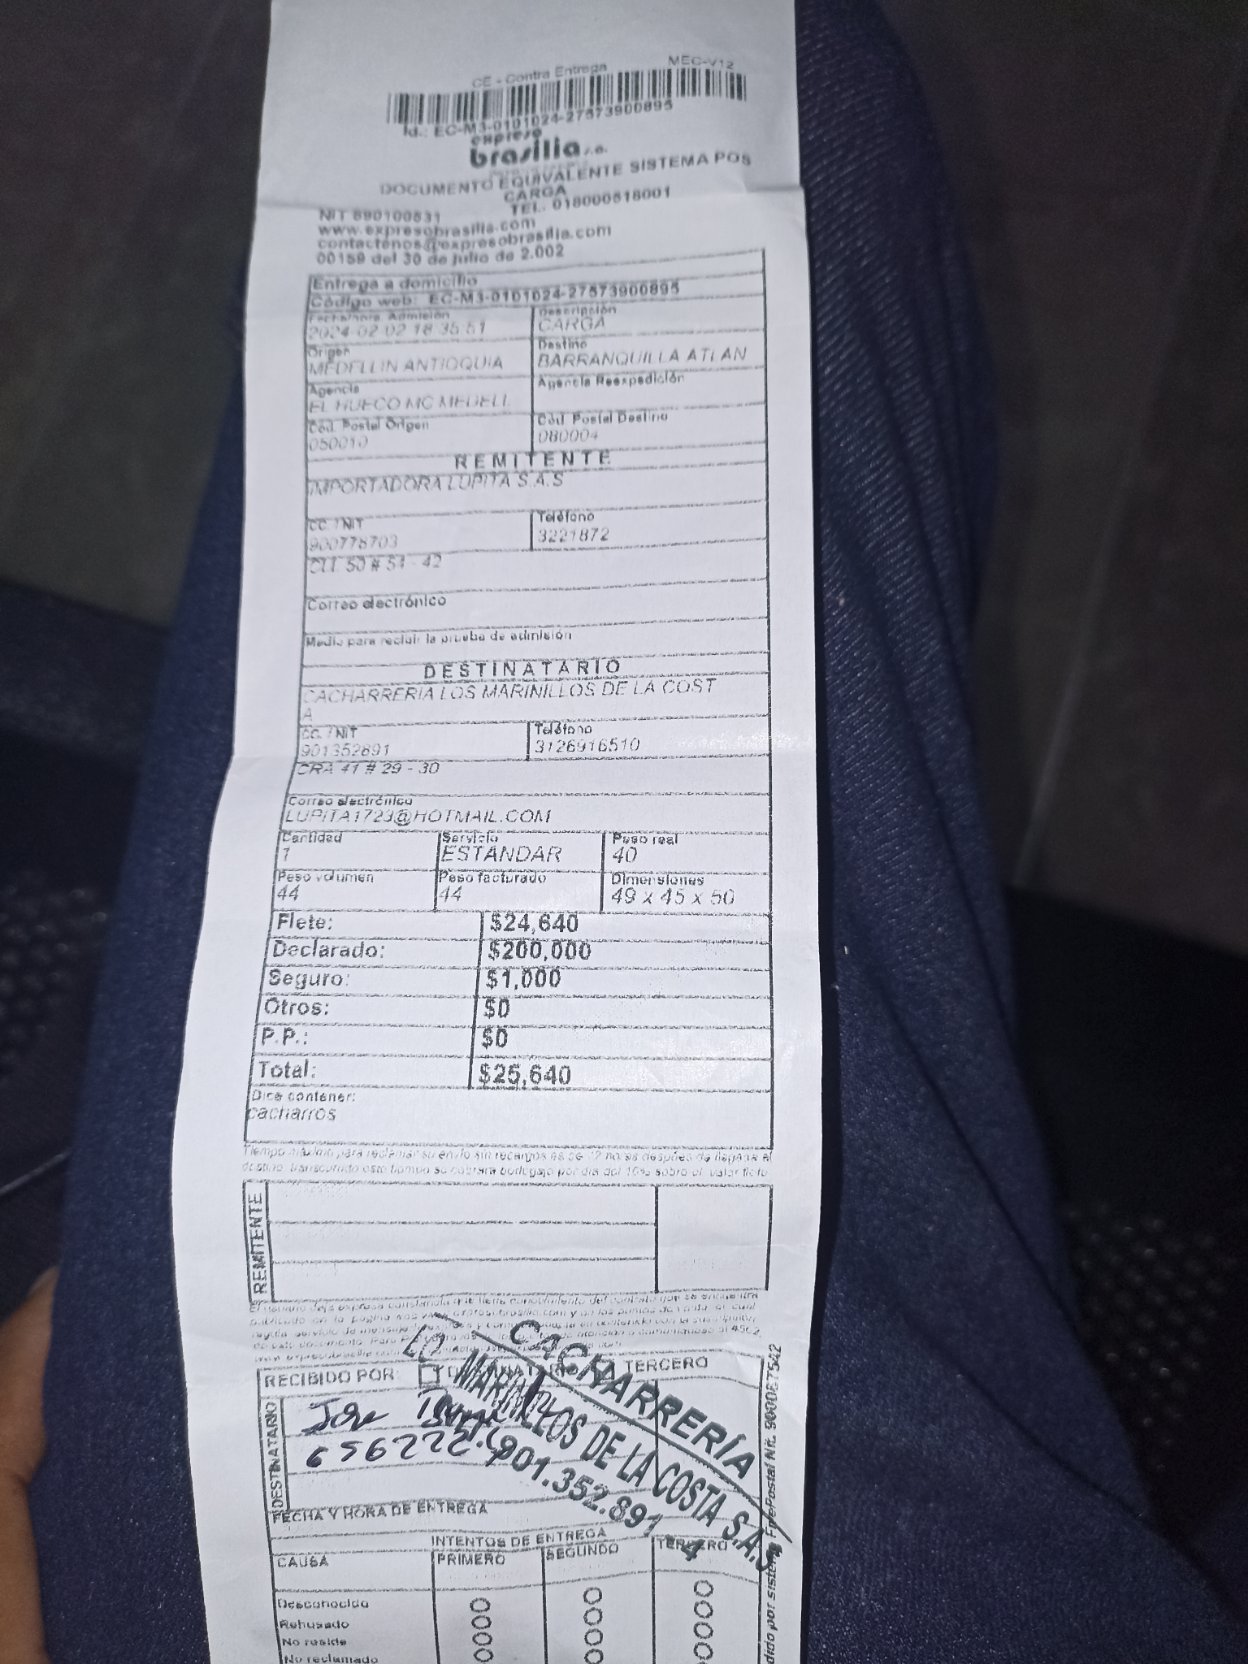 CE - Contra Entrega MEC-V12
Id.: EC-M3-0101024-27573900895
expreso
brasilia s.a.
DOCUMENTO EQUIVALENTE SISTEMA POS
CARGA
TEL. 018000518001
NIT 890100531
www.expresobrasilia.com
contactenos@expresobrasilia.com
00159 del 30 de julio de 2.002
Entrega a domicilio
Código web: EC-M3-0101024-27573900895
Fecha/hora Admisión Descripción
2024-02-02 18:35:51 CARGA
Origen Destino
MEDELLIN ANTIOQUIA BARRANQUILLA ATLAN
Agencia Agencia Reexpedición
EL HUECO MC MEDELL
Cód. Postal Origen Cód. Postal Destino
050010 080004
REMITENTE
IMPORTADORA LUPITA S.A.S
CC. / NIT Teléfono
900778703 3221872
CLL 50 # 51 - 42
Correo electrónico
Medio para recibir la prueba de admisión
DESTINATARIO
CACHARRERIA LOS MARINILLOS DE LA COST
A
CC. / NIT Teléfono
901352891 3126916510
CRA 41 # 29 - 30
Correo electrónico
LUPITA1723@HOTMAIL.COM
Cantidad Servicio Peso real
1 ESTANDAR 40
Peso volumen Peso facturado Dimensiones
44 44 49 x 45 x 50
Flete: $24,640
Declarado: $200,000
Seguro: $1,000
Otros: $0
P.P.: $0
Total: $25,640
Dice contener:
cacharros
Tiempo máximo para reclamar su envío sin recargos es de 72 horas después de llegada al
destino, transcurrido este tiempo se cobrará bodegaje por día del 10% sobre el valor flete
REMITENTE
RECIBIDO POR TERCERO
CACHARRERÍA
LOS MARINILLOS DE LA COSTA S.A.S
901.352.891-4
DESTINATARIO
FECHA Y HORA DE ENTREGA
INTENTOS DE ENTREGA
CAUSA PRIMERO SEGUNDO TERCERO
Desconocido
Rehusado
No reside
No reclamado